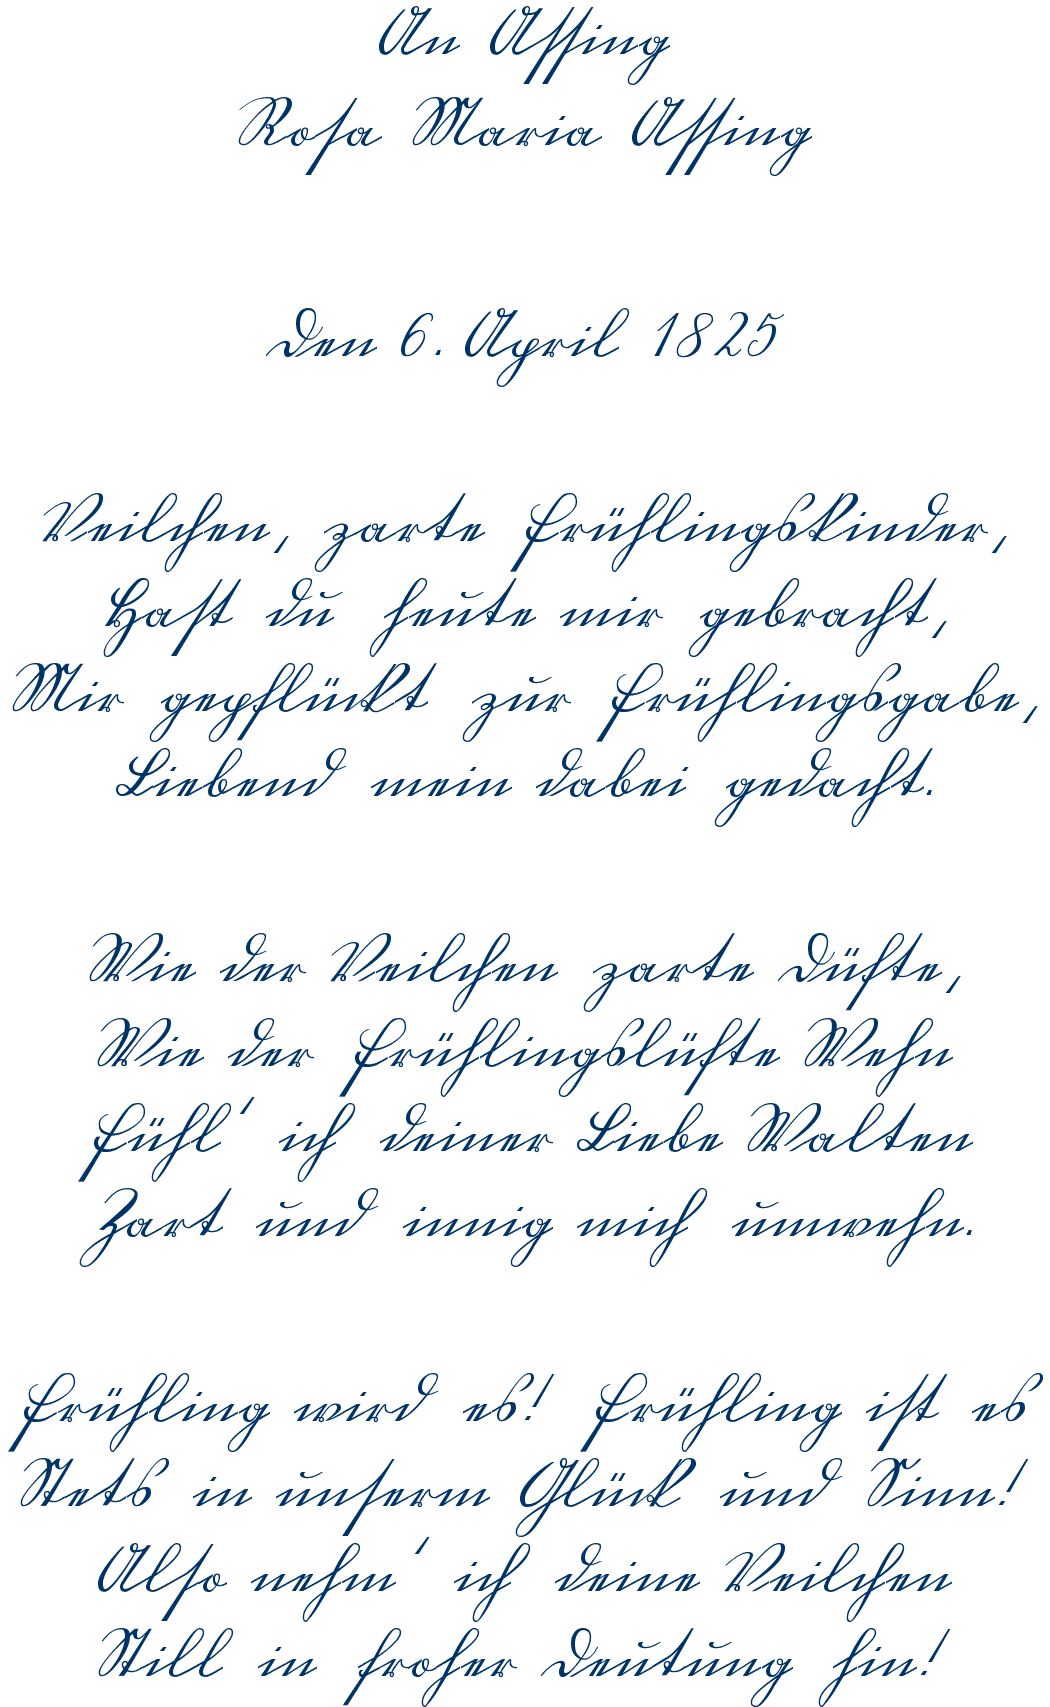 An Assing
Rosa Maria Assing
Den 6. April 1825
Veilchen, zarte Frühlingskinder,
Hast du heute mir gebracht,
Mir gepflückt zur Frühlingsgabe,
Liebend mein dabei gedacht.
Wie der Veilchen zarte Düfte,
Wie der Frühlingslüfte Wehn
Fühl' ich deiner Liebe Walten
Zart und innig mich umwehn.
Frühling wird es! Frühling ist es
Stets in unserm Glück und Sinn!
Also nehm' ich deine Veilchen
Still in froher Deutung hin!